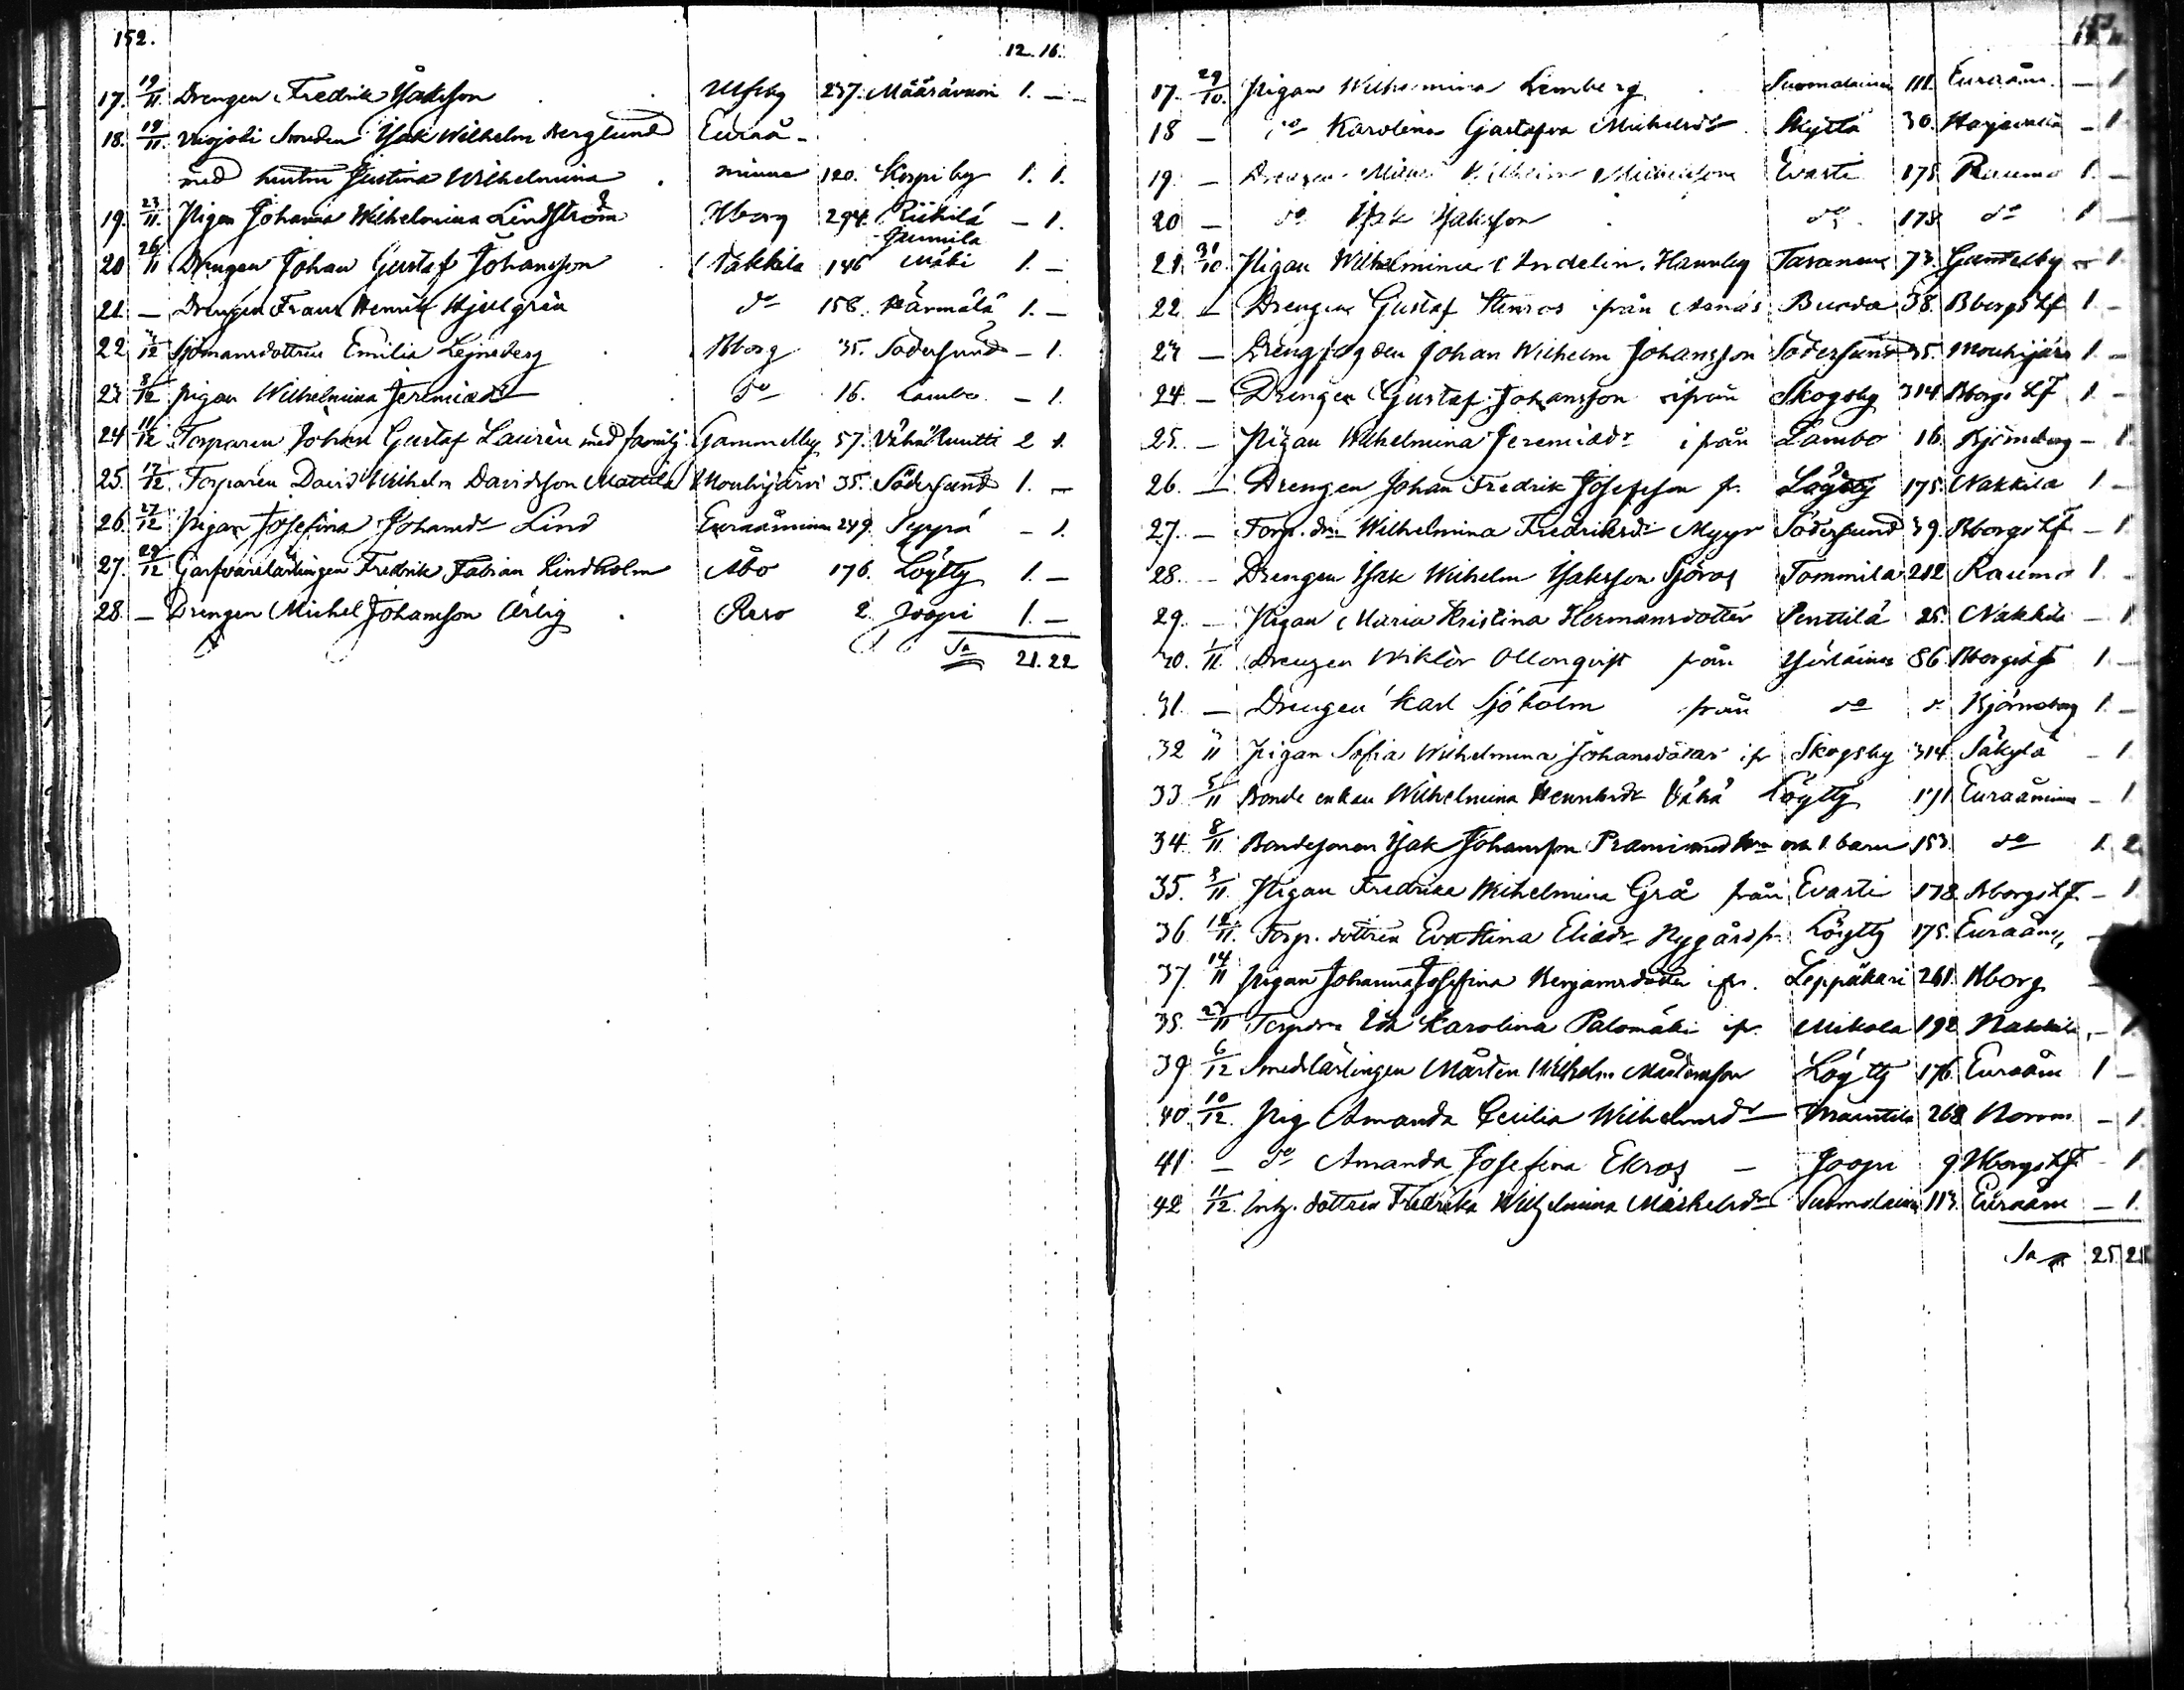 152.
12. 16.
17. 19/11. Drengen Fredrik Isaksson Ulfsby 237. Määrävuori 1. —
18. 19/11. Isak Wilhelm Berglund Euraå-
med hustru Justina Wilhelmina minne 120. Korpiby 1. 1.
19. 23/11. Pigan Johanna Wilhelmina Lindström Bborg 294. Riihilä — 1.
Gunnila
20 26/11 Drengen Johan Gustaf Johansson Nakkila 146 Mäki 1. —
21. — Drengen Frans Henrik Hjulgrén do 158. Härmälä 1. —
22 /12 Sjömansdottren Emilia Lejnsberg Bborg 35. Södersund — 1.
23 8/12 pigan Wilhelmina Jeremiasdr do 16. Lambo — 1.
24 11/12 Torparen Johan Gustaf Laurén med familj Gammelby 57. Vähä Ruutti 2 1.
25. 17/12. Torparen David Wilhelm Davidsson Mattila Mouhijärvi 35. Södersund 1. —
26. 27/12 Pigan Josefina Johansdr Lind Euraåminne 249. Seppä — 1.
27. 29/12 Garfvarelärlingen Fredrik Fabian Lindholm Åbo 176. Löytty 1. —
28. — Drengen Michel Johansson Ärlig Reso 2. Joopi 1. —
Sa 21. 22
153
17. 29/10. Pigan Wilhelmina Limberg Suomalainen 111. Euraåm. — 1
18 — do Karolina Gustafva Michelsdr Skyttä 30. Harjavalta — 1.
19. — Drengen Wilhelm Evasti 178 Raumo 1. —
20 — do Isak Isaksson do 178. do 1 —
21. 31/10. Pigan Wilhelmina Indelin. Hannby 73. Gammelby — 1.
22 — Drengen Gustaf Stenros ifrån 38. Bborgs Lf 1 —
23 — Drengfogden Johan Wilhelm Johansson Södersund 35. Mouhijärvi 1. —
24. — Drengen Gustaf Johansson ifrån Skogsby 314 Bborgs Lf 1 —
25. — Pigan Wilhelmina Jeremiadr ifrån Lambo 16. Björneborg — 1
26. — Drengen Johan Fredrik Josefsson fr. Löytty 175. Nakkila 1. —
27. — Torp. dn Wilhelmina Fredriksdr Myyr Södersund 39. Bborgs Lf — 1
28. — Drengen Isak Wilhelm Isaksson Sjöros Tommila 212 Raumo 1. —
29. — Pigan Maria Kristina Hermansdotter Penttilä 25. Nakkila — 1
30. 1/11. Drengen Wiktor Ollonqvist från 86. Bborgs Lf 1 —
31. — Drengen Karl Sjöholm från do d. Björneborg 1. —
32 /11 Pigan Sofia Wilhelmina Johansdotter ifr Skogsby 314 Säkylä — 1.
33 5/11 Bonde enkan Wilhelmina Henriksdr Vähä Löytty 171 Euraåminne — 1.
34. 8/11. Bondesonen Isak Johansson med hu och 1. barn 153. do 1. 2.
35. 8/11. Pigan Fredrika Wilhelmina Grå från Evasti 178. Bborgs Lf. — 1
36. 12/11. Torp. dottren Eva Stina Eliadr Nygård fr. Löytty 175. Euraåm,
37. 14/11 Pigan Johanna Josefina Benjamsdotter ifr. Leppäkari 261. Bborg
38. 23/11 Torpdn Ida Karolina Palomäki ifr. Mikola 192 Nakkila, — 1.
39 6/12 Smedslärlingen Mårten Wilhelm Mårtensson Löytty 176. Euraåm 1 —
40. 10/12. Pig Amanda Cecilia Wilhelmsdr 268 — 1.
41 — do Amanda Josefina Ekros — Joopi 9. Bborgs Lf — 1.
42 11/12. Inh. dottren Fredrika Wilhelmina Michelsdr Suomalainen 113. Euraåm — 1.
Sa 25 21